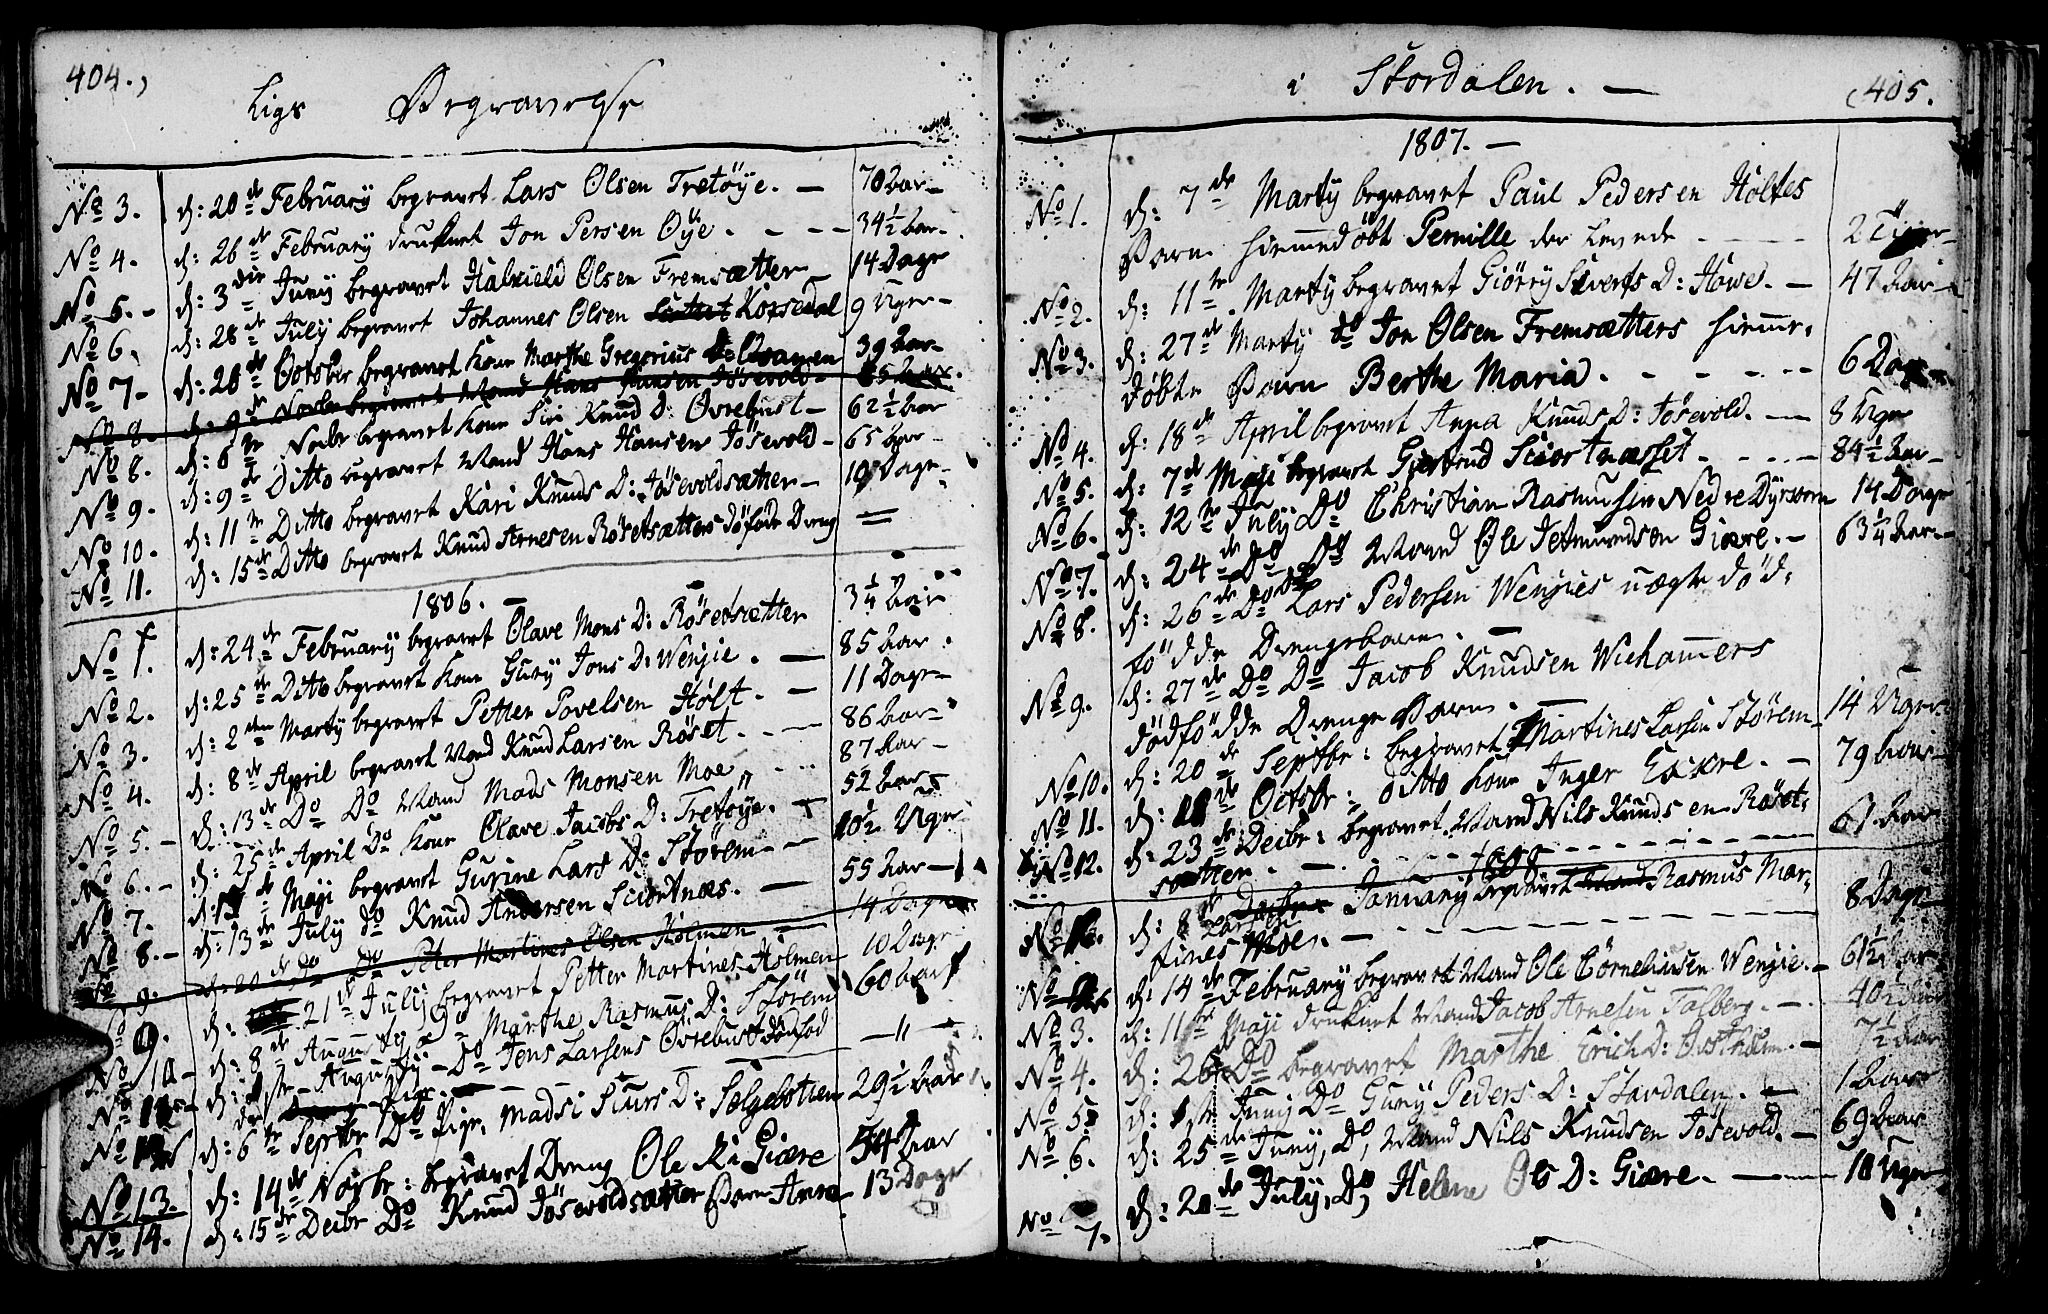 404.)
Ligs Begravelse
No 3. d: 20de February begravet Lars Olsen Tretöye. — 70 Aar —
No 4. d: 26de February druknet Jon Persen Öye. — 34½ Aar —
No 5. — d: 3die Juny begravet Halvield Olsen Fremsætter — 14 Dage
No 6. d: 28de July begravet Johannes Olsen Korsedal 9 Uger —
No 7 — d: 20de October begravet Kone Marthe Gregorius 39 Aar —
No 8. d: 9de Novbr begravet Mand Hans Hansen Jösevold — 65 Aar.
No 8. d: 6te Novbr begravet Kone Siri Knud D: Övrebust — 62½ Aar
No 9. d: 9de Ditto begravet Mand Hans Hansen Jösevold — 65 Aar —
No 10. d: 11te Ditto begravet Kari Knuds D: Jösevoldsætter — 10 Dage
No 11. d: 15de Ditto begravet Knud Arnesen Rösetsætters döföde Dreng =
1806. —
No 1. d: 24de February begravet Olave Mons D: Rösetsætter 3¼ Aar
No 2. d: 25de Ditto begravet Kone Gury Jons D: Wenjie. — 85 Aar.
No 3. d: 2den Marty begravet Petter Povelsen Holt. — 11 Dage —
No 4. d: 8de April begravet Mand Knud Larsen Röset. — 86 Aar —
No 5. — d: 13de Do Do Mand Mads Monsen Moe 87 Aar —
No 6. — d: 25de April Do Kone Olave Jacobs D: Tretöye. 52 Aar —
No 7. d: Maji begravet Gurine Lars D: Störem — 10½ Uger
No 8. — d: 13de July do Knud Andersen Sciortnæs. — 55 Aar —
9. d: 20de Do Do Peter Martines Olsen Holmen — 14 Dage
9. d: 21de July begravet Petter Martines Holmen 10 Dage
No 10 — d: 8de Augusty Do Marthe Rasmus D: Störem 60 Aar
No 11 d: 1ste Augusty — Do Jens Larsens Övrebust dödföd — " —
No 12 d: 6te Septbr Do Pige Madsi Siurs D: Sælgebotten 29½ Aar
No 13. d: 14de Novbr: begravet Dreng Ole Giære 54 Aar
No 14. d: 15de Decbr Do Knud Jösevoldsætter Barn Anne 13 Dage
i Stordalen. — 405.
1807. —
No 1. d: 7de Marty begravet Paul Pedersen Holtes
Barn hiemmedöbt Pernille der levede — 2 Timer —
No 2. d: 11te. Marty begravet Giörry Siverts D: Howe. — 47 Aar —
No 3. d: 27de Marty do Jon Olsen Fremsætters hiemme-
döbte Barn Berthe Maria. — 6 Dage
No 4. d: 18de April begravet Anna Knuds D: Jösevold. — 8 Uger
No 5. d: 7de Maji begravet Giertrud Sciortnæsset. — 84½ Aar —
No 6. d: 12te July Do Christian Rasmussen Nedre Dyrskorn 14 Dage
No 7. d: 24de Do Do Mand Ole Jetmundsen Giære. — 63¼ Aar —
No 8. d: 26de Do Do Lars Pedersen Wenjies uægte död-
födde Drengebarn. —
No 9. d: 27de Do Do Jacob Knudsen Wiehammers
dödfödde Drenge Barn. — —
No 10. d: 20de Septbr: begravet Martines Larsen Störem — 14 Uger
No 11. d: 11de Octobr: ditto Kone Inger Eckre. — 79 Aar —
No 12. d: 23de Decbr: begravet Mand Nils Knudsen Röset-
sætter. — 61 Aar
1808
No 1. d: 8de January begravet Rasmus Mar-
tines Larsen Moe. — 8 Dage
No 2. d: 14de February begravet Mand Ole Cörneliusen Wenjie. — 61½ Aar
No 3. d: 11te Maji druknet Mand Jacob Arnesen Talberg. — 40½ Aar
No 4. d: 26de Do begravet Marthe Erich D: Östholm. — 7½ Aar
No 5. d: 1ste Juny Do Gury Peders D: Stavdalen. — 1 Aar
No 6. d: 25de Juny, Do, Mand Nils Knudsen Jösevold. — 69 Aar
No 7. d: 20de July, Do, Helene Ols D: Giære. — 10 Uger